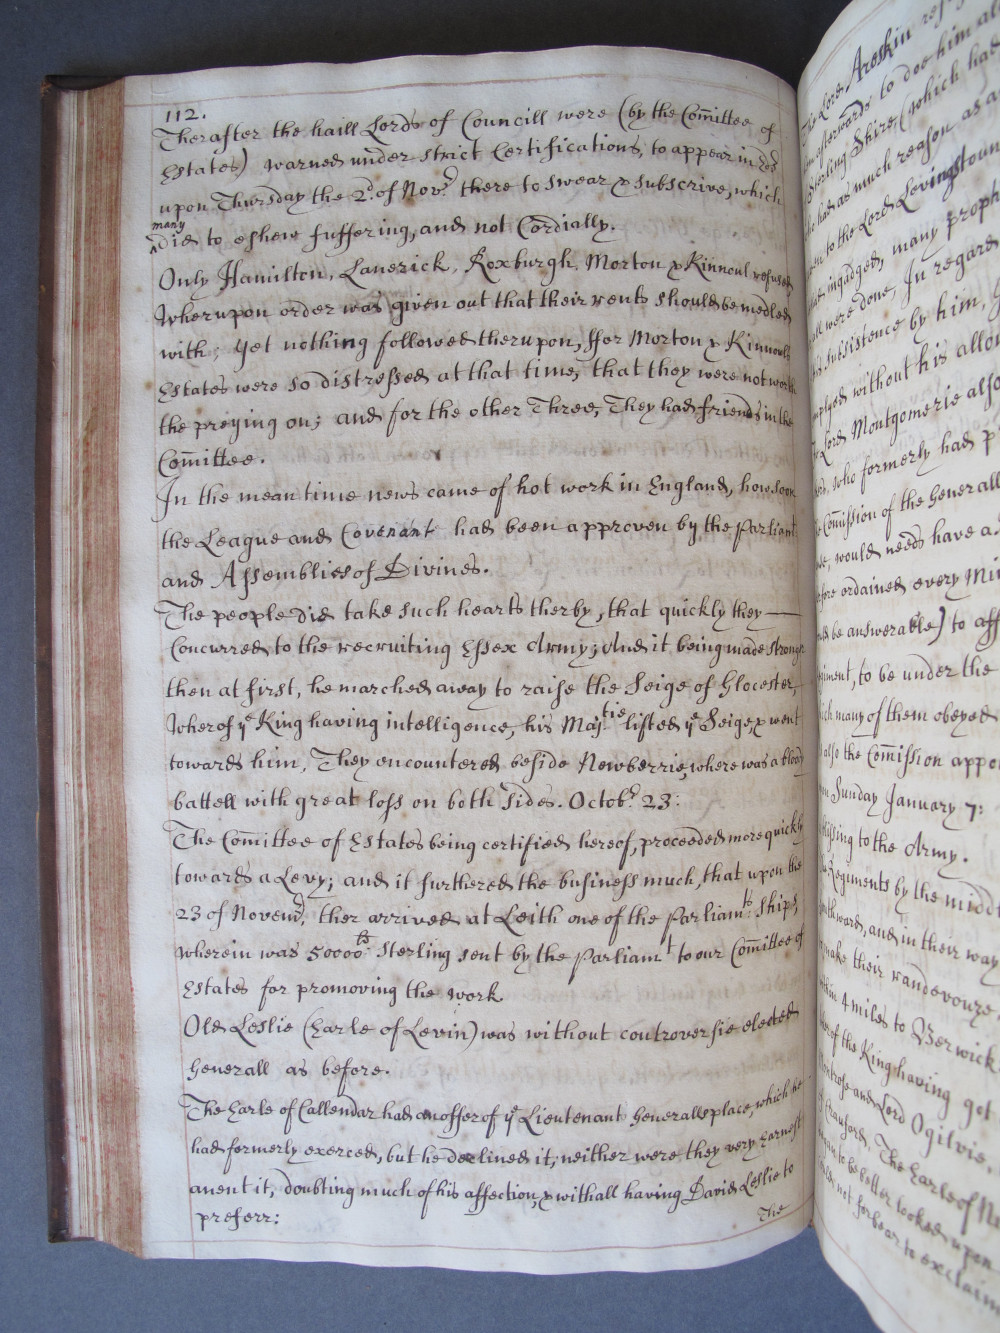 112.
Therafter the haill Lords of Councill were (by the Com̃ittee of
Estates) warned under strict Certifications, to appear in
upon Thursday the 2d. of Novr. there to swear & subscrive, which
^many did to eshew suffering, and not Cordially.
Only Hamilton, Lanerick, Roxburgh, Morton & Kinnoul refused
Wherupon order was given out that their rents should be medled
with; yet nothing followed therupon, ffor Morton & Kinnoulls
Estates were so distressed at that time, that they were not worth
the preying on; and for the other Three, They had friends in the
Com̃ittee.
In the mean time news came of hot work in England, how soon
the League and Covenant had been approven by the Parliamt
and Assemblies of Divines.
The people did take such hearts therby, that quickly they —
Concurred to the recruiting Essex Army; And it being made stronger
then at first, he marched away to raise the Seige of Glocester,
Wherof ye King having intelligence, his Majtie lifted ye Seige, & went
towards him, They encountered beside Newberrie, where was a bloody
battell with great loss on both sides. Octobr. 23:
The Com̃ittee of Estates being certified hereof, proceeded more quickly
towards a Levy; and it furthered the business much, that upon the
23 of Novemr, ther arrived at Leith one of the Parliamts. Ships,
wherein was 50000 lb. Sterling sent by the Parliamt to our Com̃ittee of
Estates for promoving the work
Old Leslie (Earle of Levin) was without controversie elected
Generall as before.
The Earle of Callendar had an offer of ye Lieutenant Generalls place, which he
had formerly exerced, but he declined it; neither were they very earnest
anent it, doubting much of his affection, & withall having David Leslie to
preferr:
The
The Lord Areskin
afterwards to doe him
Sterling Shire, (which had
he had as much reason as
to the Lord Levingstoun
ingadged, many
all were done, In regard
subsistence by him.
without his
Lord Montgomerie also
who formerly had
Com̃ission of the Generall
would needs have a
ordained every
be answerable) to
to be under the
many of them obeyed
also the Com̃ission
Sunday January 7:
to the Army.
Regiments by the
and in their way
make their randevouze
4 miles to Berwick
of the King having got
and Lord Ogilvie.
The Earle of
to be better looked upon
not forbear to exclaim